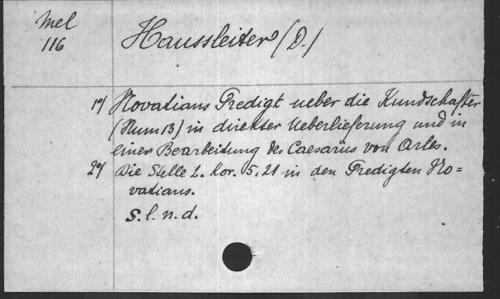 Mel
116
Haussleiter (D.)
1°/ Novatians Predigt ueber die Kundschafter
(Num 13) in direkter Ueberlieferung und in
einer Bearbeitung des Caesarius von Arles.
2°/ Die Stelle 2. Kor. 5, 21 in den Predigten No=
vatians.
S. l. n. d.